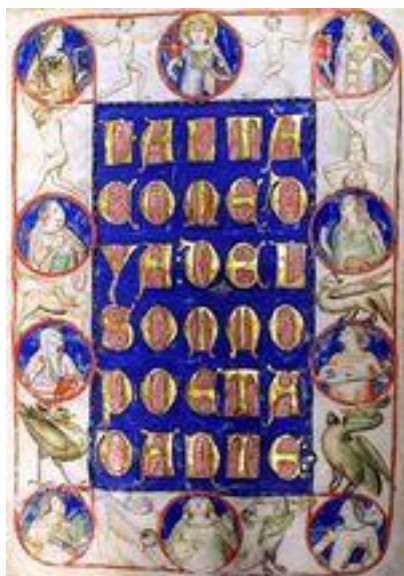 PRIMA
COMED
YA:DEL
SOMMO
POETA
DANTE